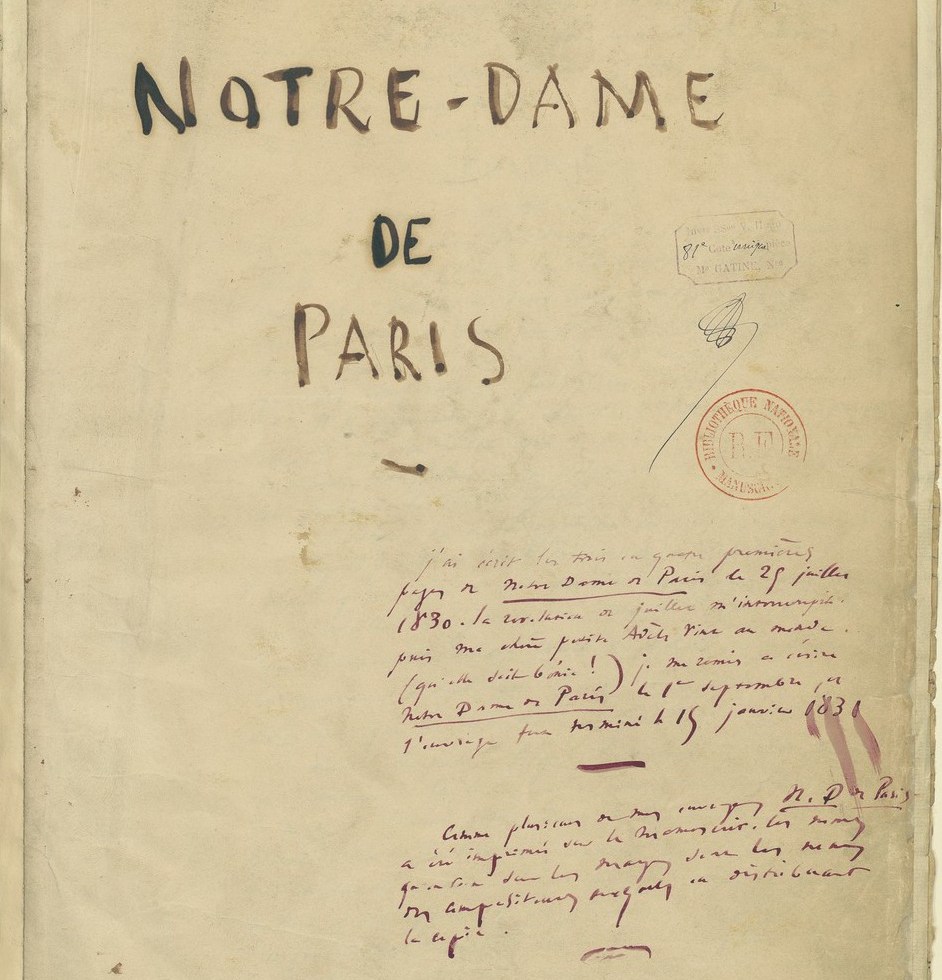 NOTRE-DAME
DE
PARIS
Inventaire V. Hugo
81e Cote
Me GATINE, Nre
BIBLIOTHÈQUE NATIONALE
R.F.
MANUSCRITS
j'ai écrit les trois ou quatre premières
pages de Notre Dame de Paris le 25 juillet
1830. la révolution de juillet m'interrompit.
puis ma chère petite Adèle vint au monde.
(qu'elle soit bénie!) je me remis à écrire
Notre Dame de Paris le 1er septembre, et
l'ouvrage fut terminé le 15 janvier 1831
Comme plusieurs de mes ouvrages N. D de Paris
a été imprimé sur le manuscrit. les noms
qu'on voit sur les marges sont les noms
des compositeurs auxquels on distribuait
la copie.